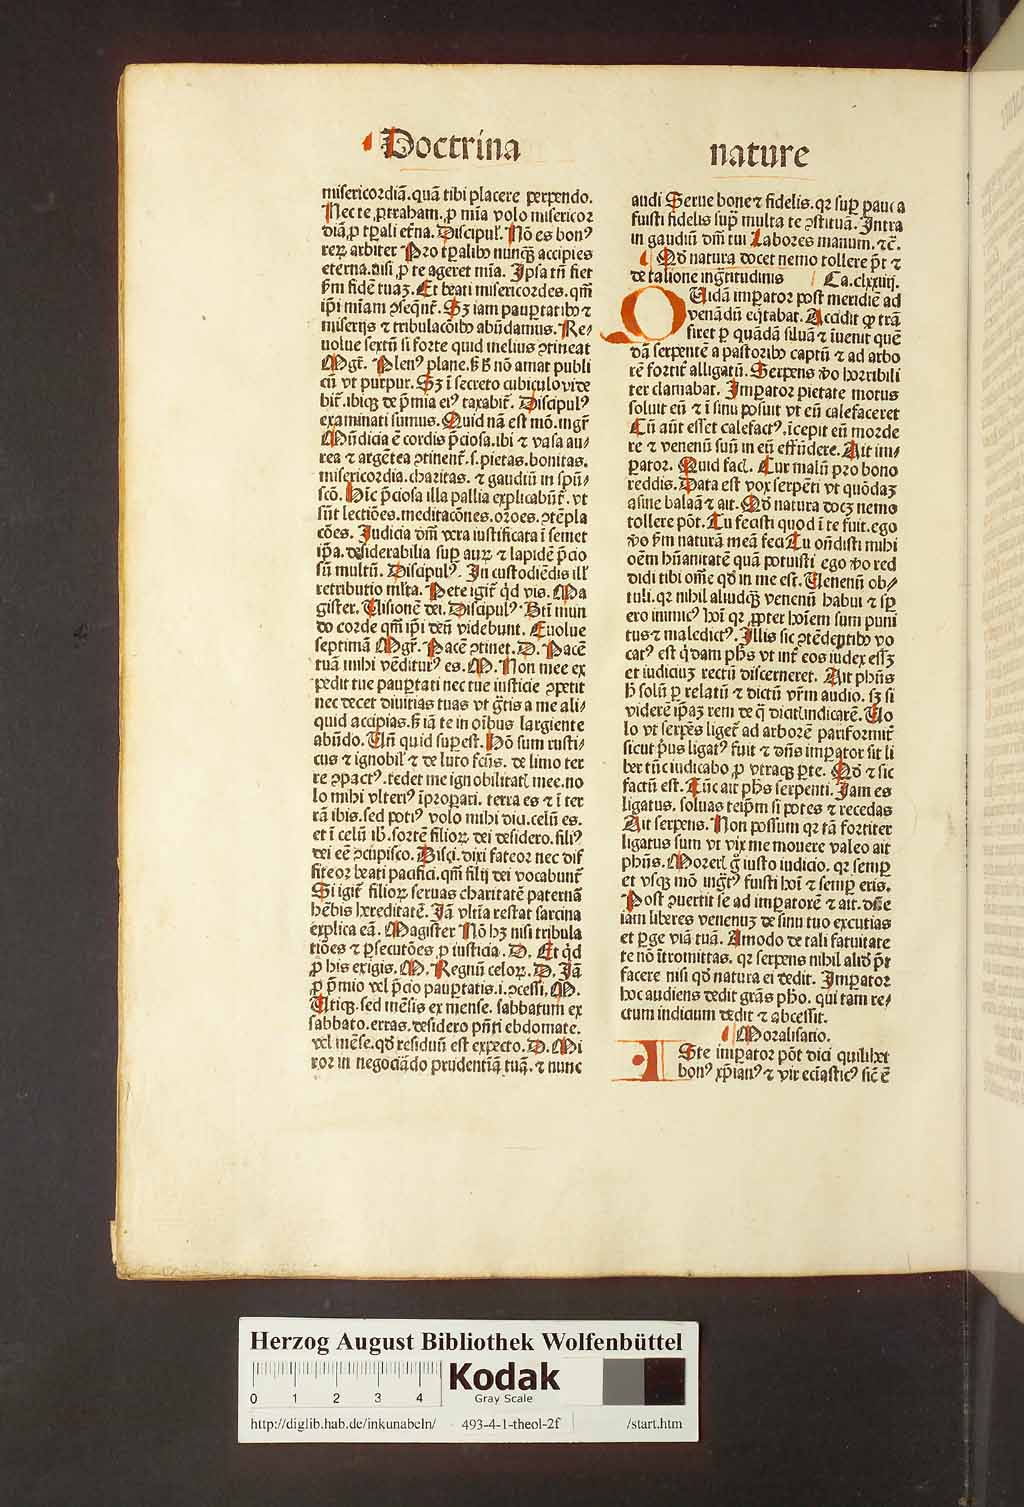 Doctrina
nature
misericordiā. quā tibi placere perpendo.
Nec te ꝓtraham. ꝓ mīa volo misericor
diā, ꝓ tꝑali et̄na. Discipul᷒. Nō es bonꝰ
reꝝ arbiter Pro tꝑalibꝰ nunqꝫ accipies
eterna. nisi ꝓ te ageret mīa. Ipsa tn̄ fiet
ẜm fidē tuaꝫ. Et beati misericordes. qm̄
ip̄i mīam ꝯseqnt̄. Sꝫ iam pauꝑtatibꝰ ⁊
miserijs ⁊ tribulacōibꝰ abūdamus. Re⸗
uolue sextū si forte quid melius ꝯtineat
Mgr̄. Plenꝰ plane. ẜ ꝫ nō amat publi
cū vt purpur. Sꝫ ī secreto cubiculo vide
bit̄. ibiqꝫ de p̄mia eiꝰ taxabit̄. Discipulꝰ
examinati sumus. Quid nā est mō. mgr̄
Mūdicia ē cordis p̄ciosa. ibi ⁊ vasa au⸗
rea ⁊ argētea ꝯtinent̄. s. pietas. bonitas.
misericordia. charitas. ⁊ gaudiū in spū⸗
scō. Hīc p̄ciosa illa pallia explicabūt̄. vt
sūt lectiōes. meditacōnes. oꝛ̄oes. ꝯtēpla
cōes. Judicia dn̄i vera iustificata ī semet
ip̄a. desiderabilia suꝑ auꝝ ⁊ lapidē p̄cio
sū multū. Discipulꝰ. In custodiēdis ill᷒
retributio ml̄ta. Pete igit̄ qͥd vis. Ma
gister. Visionē dei. Discipulꝰ. Btī mun
do corde qm̄ ip̄i deū videbunt. Euolue
septimā Mgr̄. Pacē ꝯtinet. D. Pacē
tuā mihi vēditurꝰ es. M. Non mee ex
pedit tue pauꝑtati nec tue iusticie ꝯpetit
nec decet diuitias tuas vt gͣtis a me ali⸗
quid accipias. ẜ iā te in oībus largiente
abūdo. Vn̄ quid suꝑest. Hō sum rusti⸗
cus ⁊ ignobil᷒ ⁊ de luto fctūs. de limo ter
re ꝯpactꝰ. tedet me ignobilitatꝭ mee. no
lo mihi vlteriꝰ īproꝑari. terra es ⁊ ī ter
rā ibis. sed potiꝰ volo mihi dici. celū es.
et ī celū ib᷒. sortē filioꝝ dei desidero. filiꝰ
dei eē ꝯcupisco. Disci. dixi fateor nec dif
fiteor beati pacifici. qm̄ filij dei vocabunt̄
Si igit̄ filioꝝ seruas charitatē paternā
hēbis hereditatē. Jā vltīa restat sarcina
explica eā. Magister Nō hꝫ nisi tribula
tiōes ⁊ ꝑsecutōes ꝓ iusticia. D. Et qͥd
ꝓ his exigis. M. Regnū celoꝝ. D. Jā
ꝓ p̄mio vel p̄cio pauꝑtatis. i. ꝯcessi. M.
Vtiqꝫ. sed mēsis ex mense. sabbatum ex
sabbato. erras. desidero pn̄ti ebdomate.
vel mēse. qd̄ residuū est expecto. D. Mi
ror in negociādo prudentiā tuā. ⁊ nunc
audi Serue bone ⁊ fidelis. qꝛ suꝑ pauca
fuisti fidelis suꝑ multa te ꝯstituā. Intra
in gaudiū dn̄i tui Labores manum. ⁊c̄.
Qd̄ natura docet nemo tollere pōt ⁊
de talione ingͣtitudinis Ca. clxxiiij.
QUidā imꝑator post meridiē ad
venādū eqͥtabat. Accidit ꝙ trā
siret ꝑ quādā siluā ⁊ īuenit quē
dā serpentē a pastoribꝰ captū ⁊ ad arbo
rē fortit̄ alligatū. Serpens v̄o horribili
ter clamabat. Imꝑator pietate motus
soluit eū ⁊ ī sinu posuit vt eū calefaceret
Cū aūt esset calefactꝰ. īcepit eū morde
re ⁊ venenū suū in eū effūdere. Ait im⸗
ꝑator. Quid facꝭ. Cur malū pro bono
reddis. Data est vox serpēti vt quōdaꝫ
asine balaā ⁊ ait. Qd̄ natura docꝫ nemo
tollere pōt. Tu fecisti quod ī te fuit. ego
v̄o ẜm naturā meā feci Tu on̄disti mihi
oēm hūanitatē quā potuisti ego v̄o red
didi tibi om̄e qd̄ in me est. Venenū ob⸗
tuli. qꝛ nihil aliud qꝫ venenū habui ⁊ sꝑ
ero inimicꝰ hoī qꝛ ꝓpter hoīem sum puni
tus ⁊ maledictꝰ. Illis sic ꝯtēdentibꝰ vo
catꝰ est qͥdam ph̄s vt int̄ eos iudex esset
et iudiciuꝫ rectū discerneret. Ait phūs
ꝫ solū ꝑ relatū ⁊ dictū vr̄m audio. sꝫ si
viderē ip̄aꝫ rem de q̄ dicitꝭ iudicarē. Vo
lo vt serpēs liget̄ ad arborē pariformit̄
sicut pͥus ligatꝰ fuit ⁊ dn̄s imꝑator sit li
ber tūc iudicabo ꝓ vtraqꝫ ꝑte. Qd̄ ⁊ sic
factū est. Tūc ait ph̄s serpenti. Jam es
ligatus. soluas teip̄m si potes ⁊ recedas
Ait serpens. Non possum qꝛ tā fortiter
ligatus sum vt vix me mouere valeo ait
phūs. Morerꝭ gͦ iusto iudicio. qꝛ semꝑ
et vsqꝫ mō ingͣtꝰ fuisti hoī ⁊ semꝑ eris.
Post ꝯuertit se ad imꝑatorē ⁊ ait. dn̄e
iam liberes venenuꝫ de sinu tuo excutias
et ꝑge viā tuā. Amodo de tali fatuitate
te nō ītromittas. qꝛ serpens nihil aliud pōt
facere nisi qd̄ natura ei dedit. Imꝑator
hoc audiens dedit gr̄as ph̄o. qui tam re⸗
ctum iudicium dedit ⁊ abcessit.
Moralisatio.
ISte imꝑator pōt dici quilibet
bonꝰ xp̄ianꝰ ⁊ vir ecc̄iasticꝰ sic̄ ē
Herzog August Bibliothek Wolfenbüttel
0 1 2 3 4
Kodak
Gray Scale
http://diglib.hab.de/inkunabeln/ 493-4-1-theol-2f /start.htm